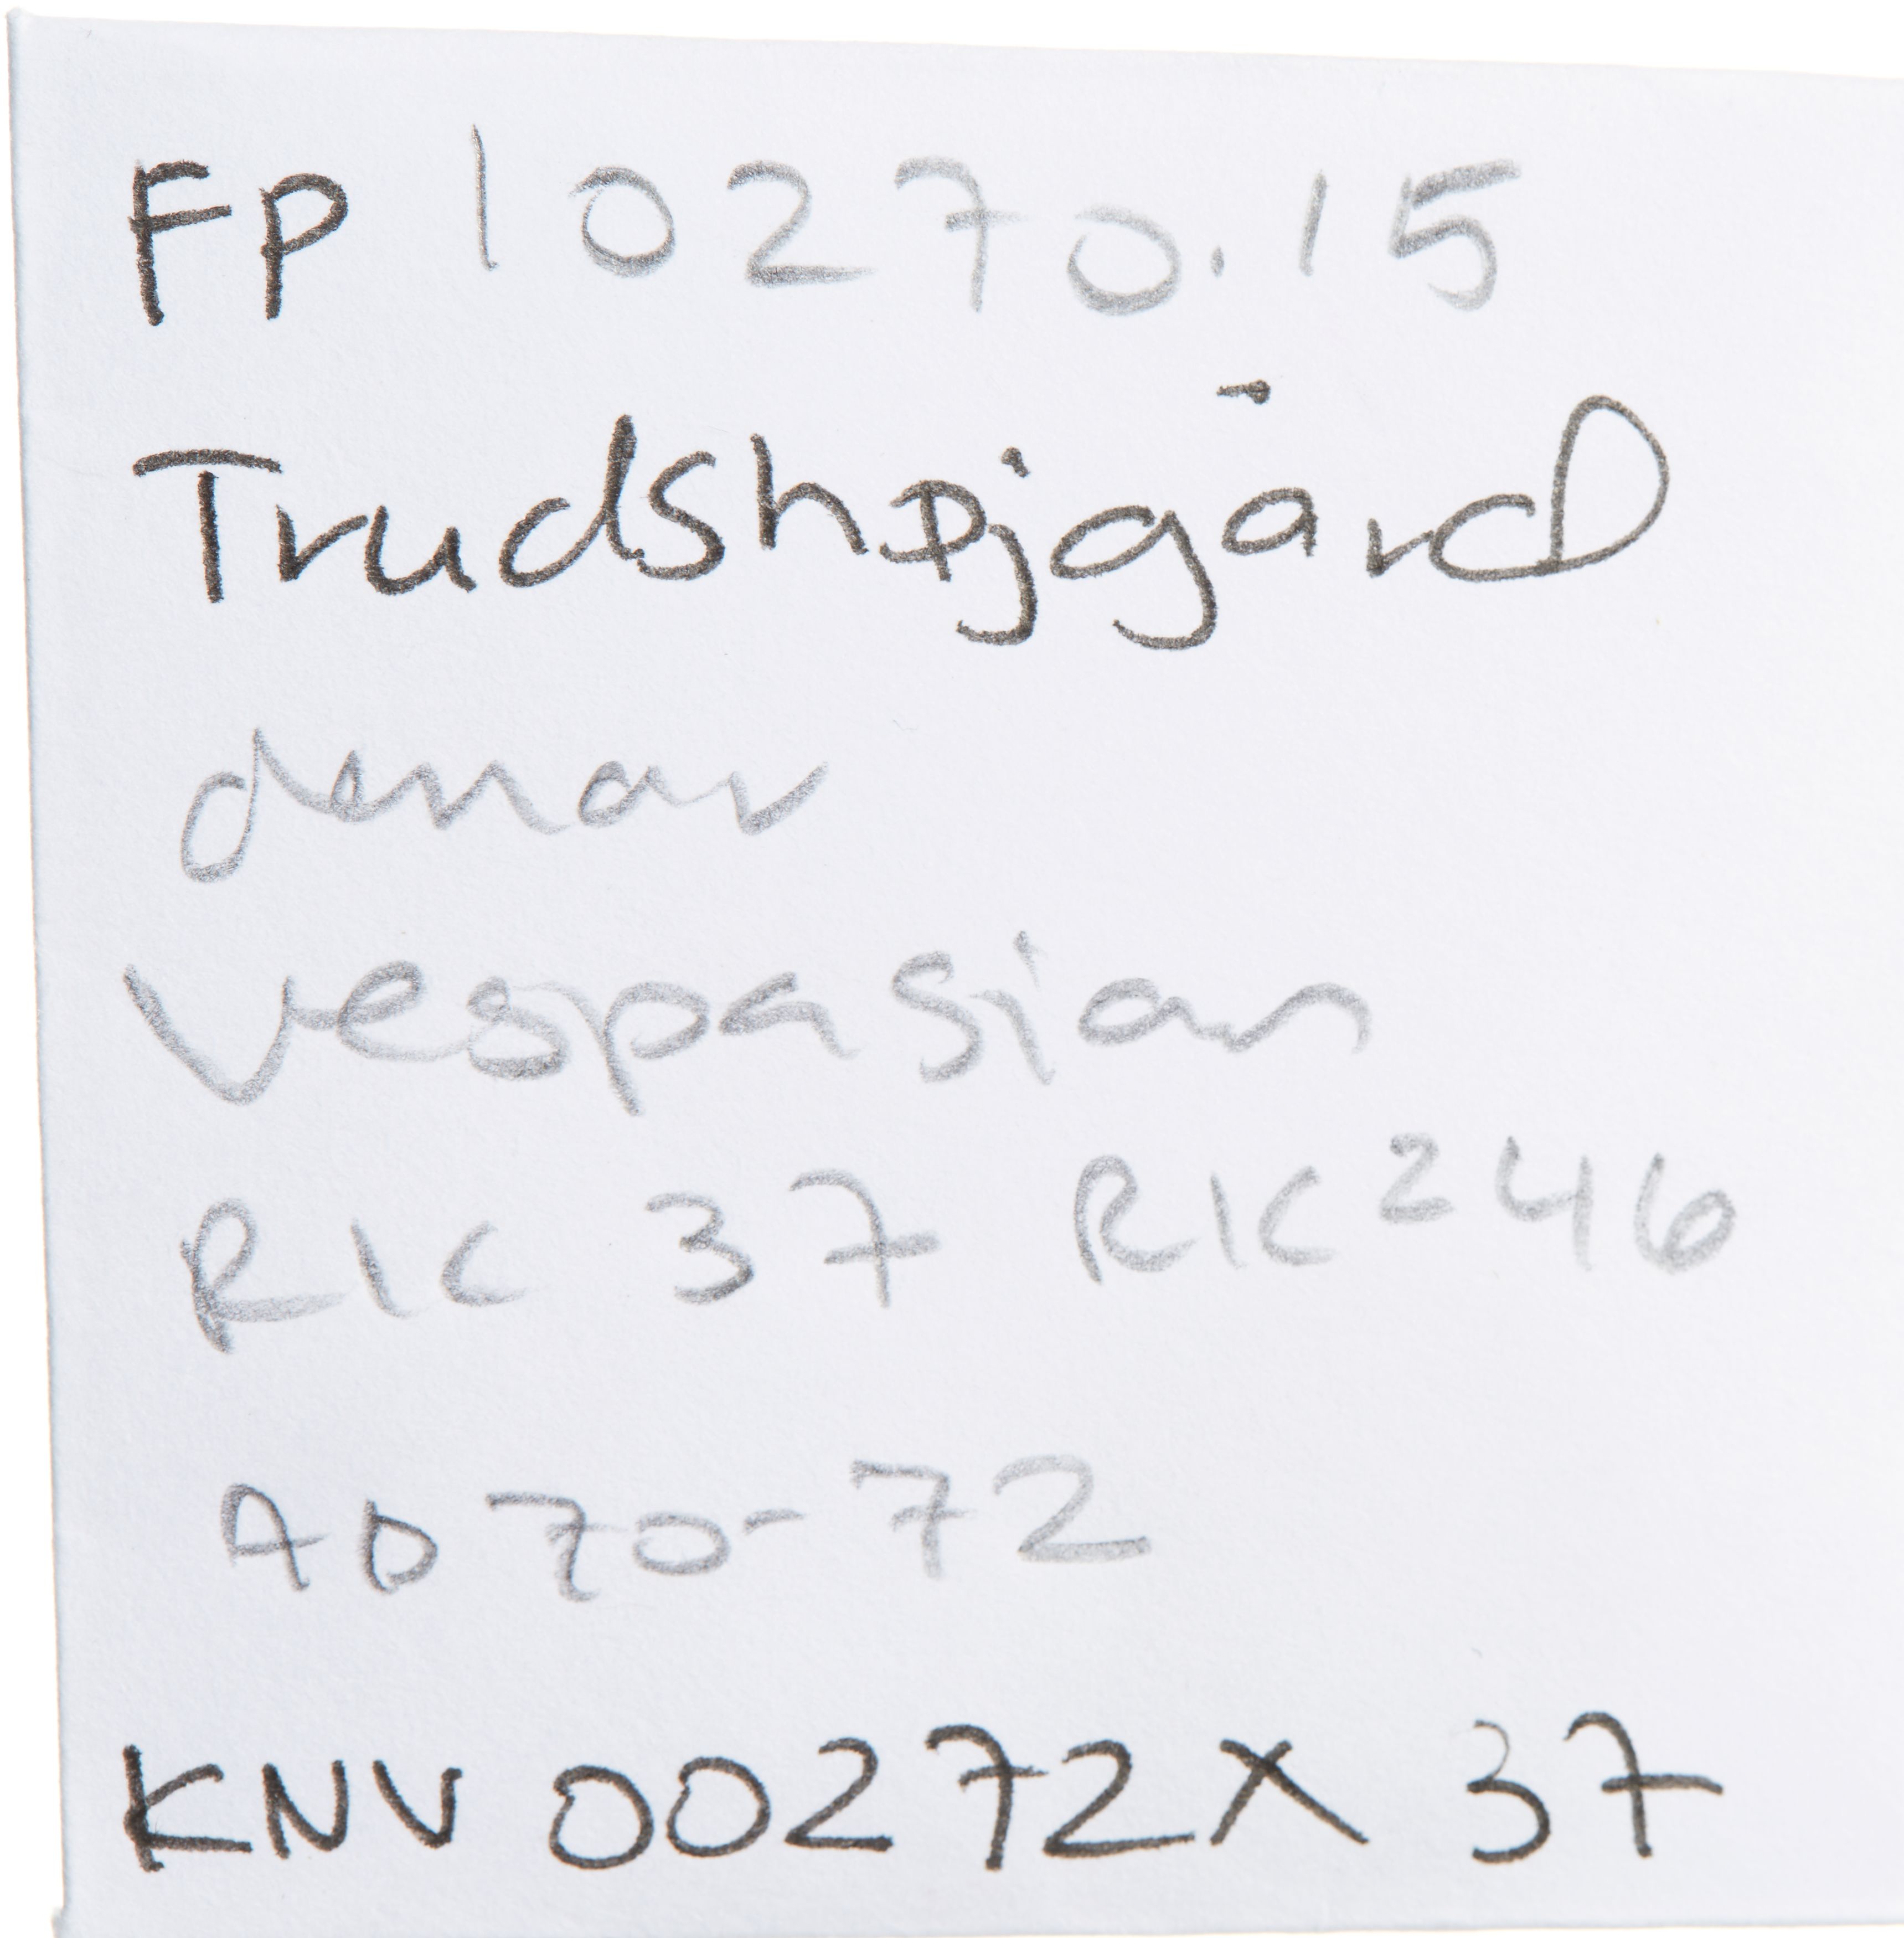 FP 10270.15
Trudshøjgård
denar
Vespasian
RIC 37 RIC² 46
AD 70-72
KNV 00272X 37